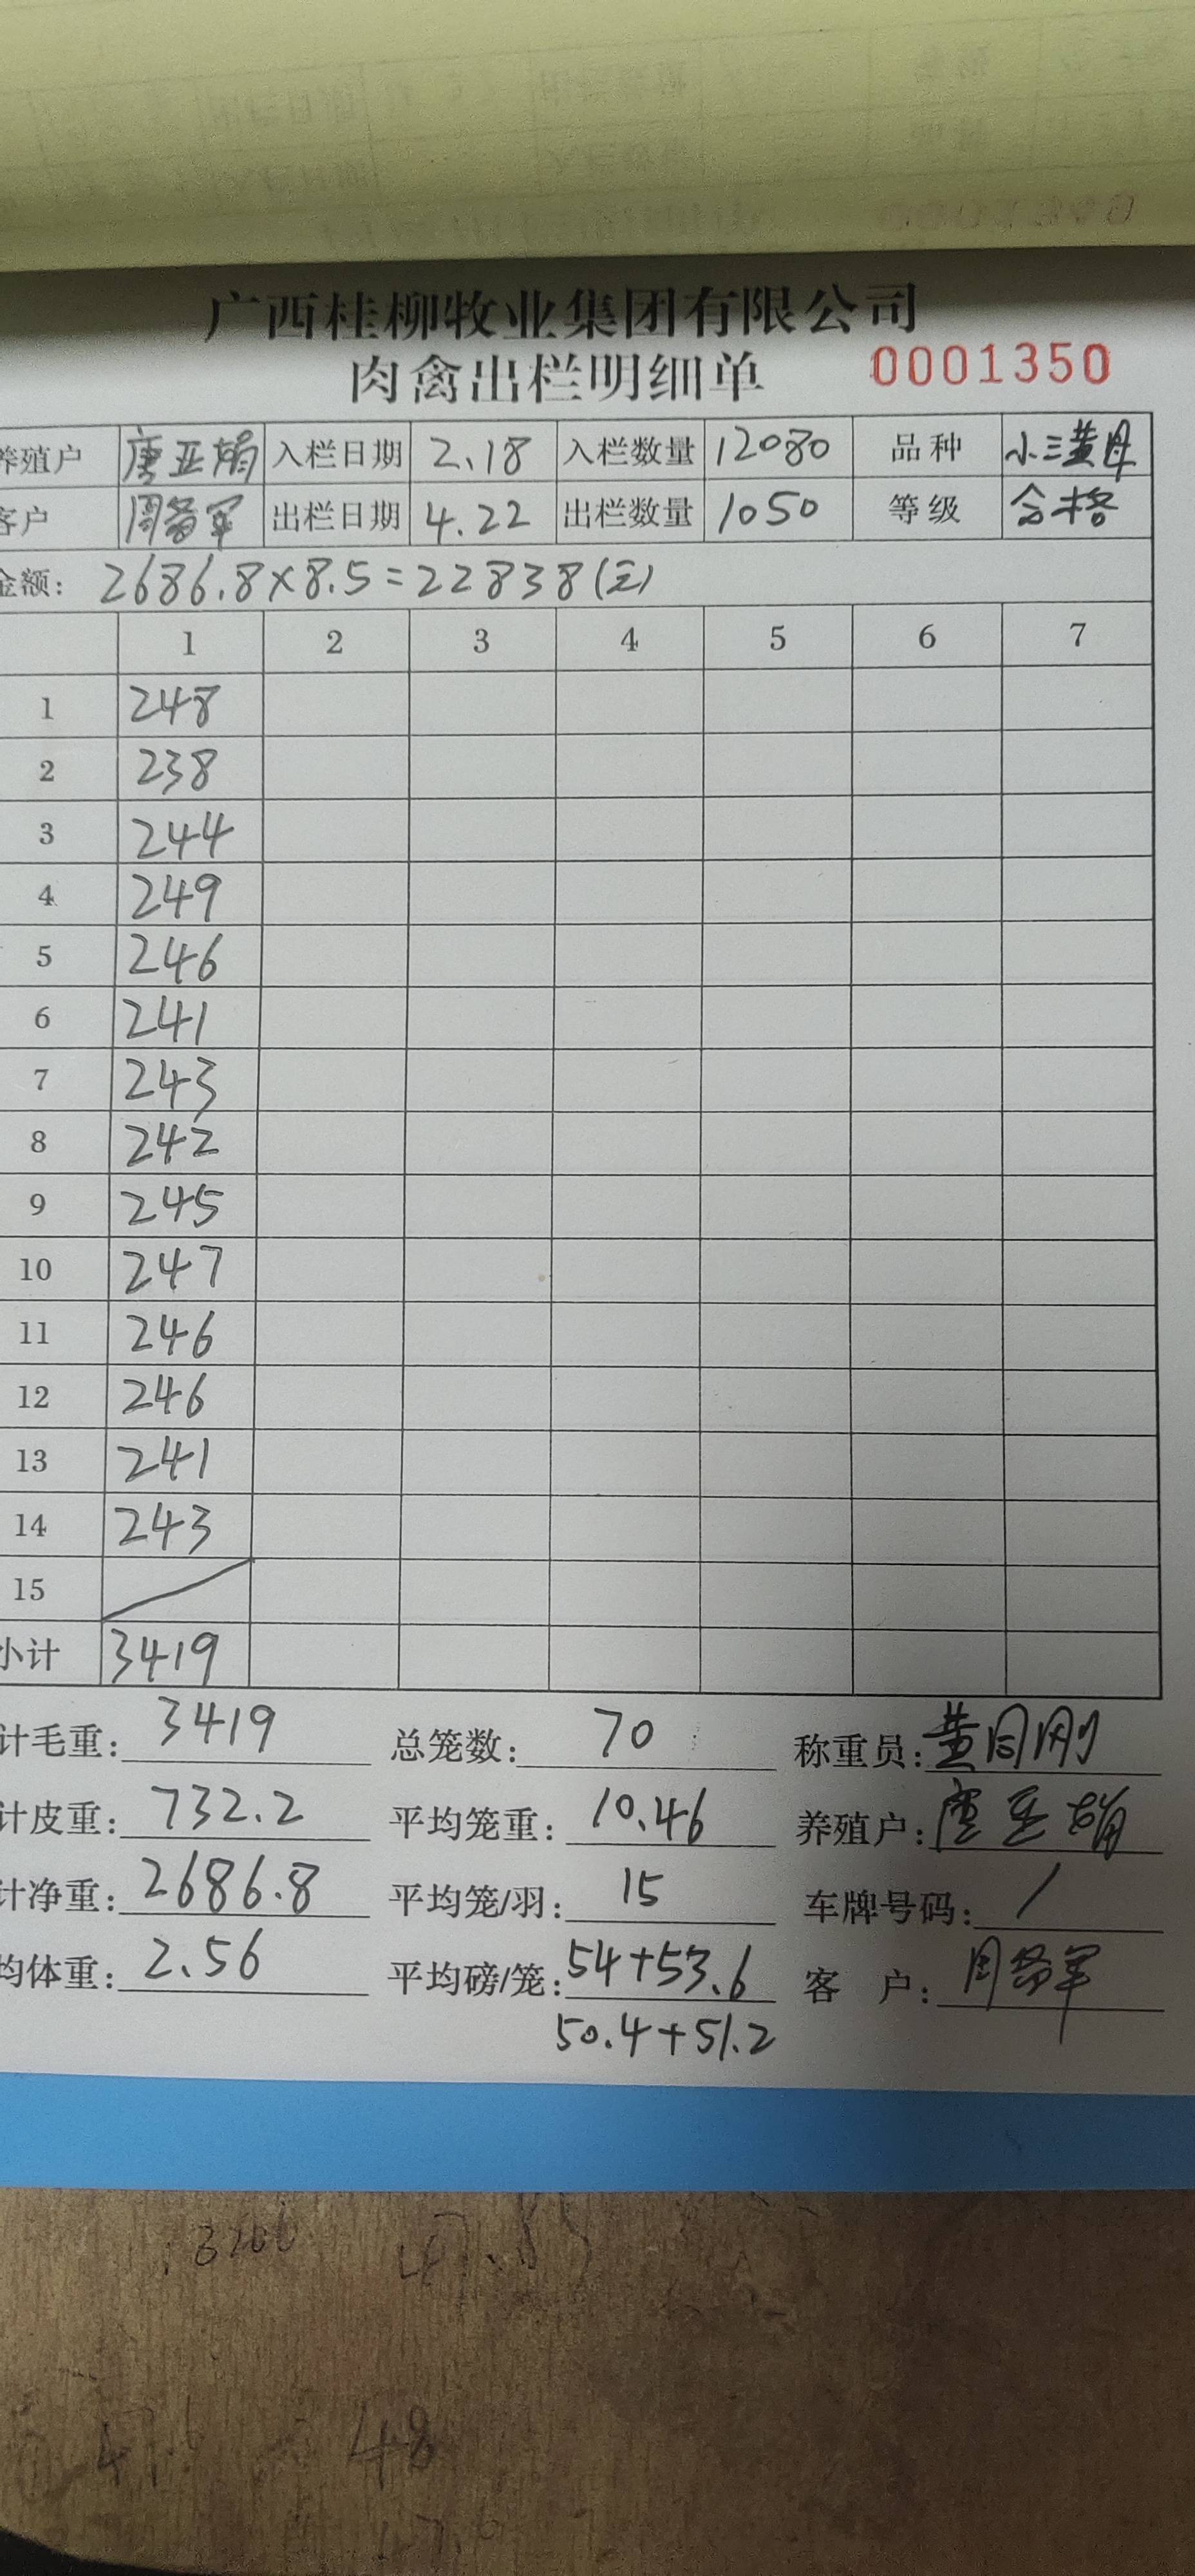 广西桂柳牧业集团有限公司
肉禽出栏明细单 0001350
养殖户 唐亚娟 入栏日期 2.18 入栏数量 12080 品种 小三黄母
客户 出栏日期 4.22 出栏数量 1050 等级 合格
金额: 2686.8×8.5=22838(元)
1 2 3 4 5 6 7
1 248
2 238
3 244
4 249
5 246
6 241
7 243
8 242
9 245
10 247
11 246
12 246
13 241
14 243
15
小计 3419
计毛重: 3419 总笼数: 70 称重员: 黄同刚
计皮重: 732.2 平均笼重: 10.46 养殖户: 唐亚娟
计净重: 2686.8 平均笼/羽: 15 车牌号码: /
均体重: 2.56 平均磅/笼: 54+53.6 客 户:
50.4+51.2
48